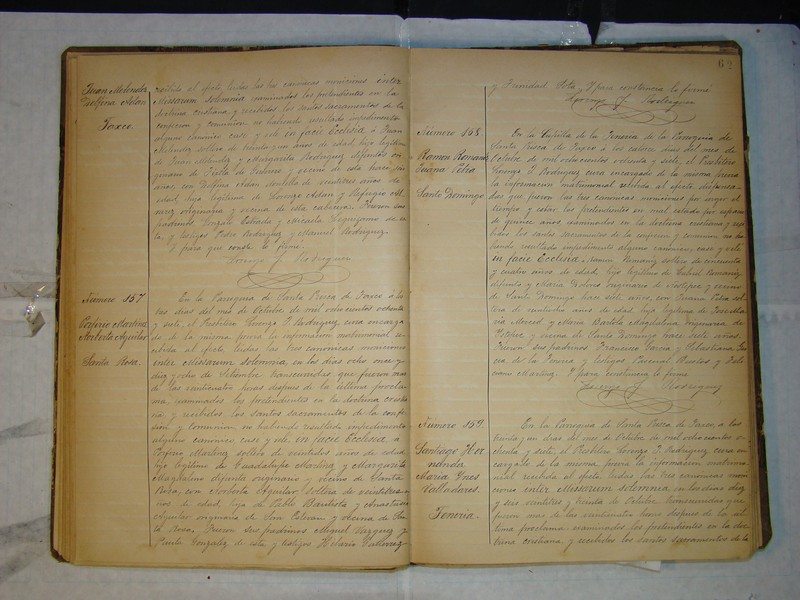 Juan Melendez
Delfina Adan
Taxco.
recibida al efecto, leidas las tres canonicas moniciones inter
Missarum solemnia examinados los pretendientes en la
doctrina cristiana y recibidos los santos sacramentos de la
confesion y comunion no habiendo resultado impedimento
alguno canonico case y velé in facie Ecclesia á Juan
Melendez soltero de treinta y un años de edad, hijo legitimo
de Juan Melendez y Margarita Rodriguez difuntos ori-
ginario de Puebla de y vecino de esta hace
años, con Delfina Adan doncella de veintitres años de
edad, hija legitima de Lorenzo Adan y Refugio
originaria y vecina de esta cabecera. Fueron sus
padrinos Gonzalo Estrada y Micaela de es-
ta, y testigos Pedro Rodriguez y Manuel Rodriguez.
Y para que conste lo firmé.
Lorenzo J. Rodriguez
Número 157.
Porfirio Martinez
Norberta Aguilar
Santa Rosa.
En la Parroquia de Santa Prisca de Taxco á los
tres dias del mes de Octubre de mil ochocientos ochenta
y siete, el Presbitero Lorenzo J. Rodriguez, cura encarga-
do de la misma previa la informacion matrimonial re-
cibida al efecto leidas las tres canonicas moniciones
inter Missarum solemnia, en los dias ocho once y
diez y ocho de Setiembre transcurridas que fueron mas
de las veinticuatro horas despues de la ultima procla-
ma; examinados los pretendientes en la doctrina cristia-
na, y recibidos los santos sacramentos de la confe-
sion y comunion no habiendo resultado impedimento
alguno canonico, case y velé in facie Ecclesia á
Porfirio Martinez soltero de veintidos años de edad
hijo legitimo de Guadalupe Martinez y Margarita
Magdalena difunta originario y vecino de Santa
Rosa, con Norberta Aguilar, soltera de veintitres a-
ños de edad, hija de Pablo Bautista y Anastacia
Aguilar originaria de San Esteban y vecina de San-
ta Rosa. Fueron sus padrinos Miguel Vazquez y
Paula Gonzalez de esta y testigos Hilario Vallarez
62
y Trinidad Soto. Y para constancia lo firmé
Lorenzo J. Rodriguez
Número 158.
Ramon Romaniz
Juana Petra
Santo Domingo.
En la Capilla de la Teneria de la Parroquia de
Santa Prisca de Taxco á los catorce dias del mes de
Octubre de mil ochocientos ochenta y siete, el Presbitero
Lorenzo J. Rodriguez cura encargado de la misma previa
la informacion matrimonial recibida al efecto, dispensa-
das que fueron las tres canonicas moniciones por urgir el
tiempo y estar los pretendientes en mal estado por espacio
de quince años, examinados en la doctrina cristiana y re-
cibidos los santos sacramentos de la confesion y comunion no ha-
biendo resultado impedimento alguno canonico, case y velé
in facie Ecclesia Ramon soltero de cincuenta
y cuatro años de edad, hijo legitimo de Gabriel
difunto y Maria Dolores originario de y vecino
de Santo Domingo hace siete años, con Juana Petra sol-
tera de años de edad hija legitima de
Merced y Maria Magdalena, originaria de
y vecina de Santo Domingo hace siete años.
Fueron sus padrinos Francisco Garcia y
de la Teneria y testigos Pascual Bustos y
Martinez. Y para constancia lo firmé
Lorenzo J. Rodriguez
Número 159.
Santiago Her
nandez
Maria Ynes
Valladares.
Teneria.
En la Parroquia de Santa Prisca de Taxco, á los
treinta y un dias del mes de Octubre de mil ochocientos o-
chenta y siete, el Presbitero Lorenzo J. Rodriguez cura en-
cargado de la misma, previa la informacion matrimo-
nial recibida al efecto, leidas las tres canonicas moni-
ciones inter Missarum solemnia, en los dias diez
y seis veintitres y treinta de Octubre, transcurridas que
fueron mas de las veinticuatro horas despues de la ul-
tima proclama examinados los pretendientes en la doc-
trina cristiana, y recibidos los santos sacramentos de la